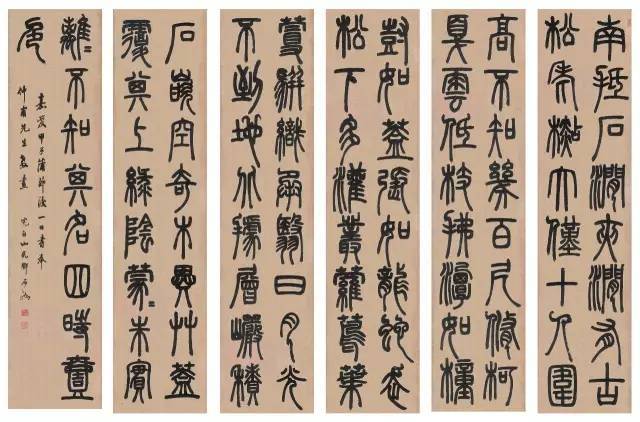 南抵石澗夾澗有古
松老檆大僅十人圍
高不知幾百尺脩柯
戛雲低枝拂潭如橦
尌如蓋張如龍蛇走
松下多灌叢蘿蔦葉
蔓駢織承翳日月光
不到地北據層巖積
石嵌空奇木異艸蓋
覆其上綠陰蒙〻朱實
離〻不知其名四時壹
色
嘉慶甲子蒲節後一日書奉
仲甫先生教畫
完白山民鄧石如